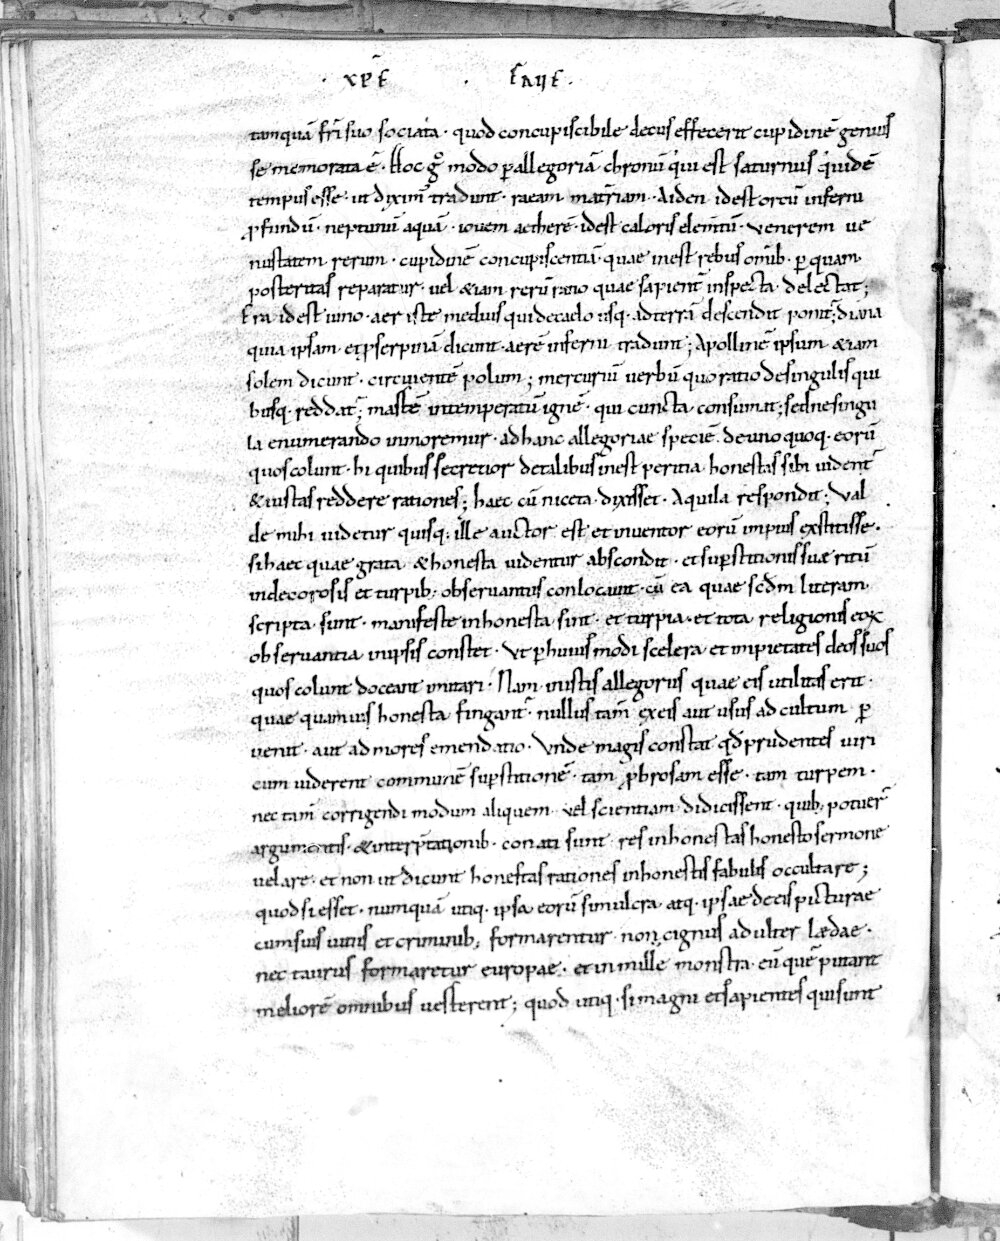 · xp̄e · faue ·
tamquā fr̄i suo sociata · quod concupiscibile decus effecerit cupidinē genuis
se memorata ē · Hoc gͦ modo p allegoriā chronū qui est saturnus quidē
tempus esse · ut diximꝰ tradunt · raeam matr̄iam · Aiden idest ortū inferni
p̱fundū · neptunū aquā · iovem aetherē · idest caloris elem̄tū · venerem ue
nustatem rerum · cupidinē concupiscentiā · quae inest rebus om̄ib · p quam
posteritas reparatur · vel &iam rerū ratio quae sapient̄ inspecta · delectat;
tra idest iuno · aer iste medius qui decaelo usq · adterrā descendit ponit̄; diana
quia ipsam et p̱serpinā dicunt · aerē inferni tradunt; Apollinē ipsum &iam
solem dicunt · circuientē polum; mercuriū verbū quo ratio desingulis qui
busq · reddat̄; mastē intemperatū ignē · qui cuncta consumit; sed nesingu
la enumerando inmoremur · adhanc allegoriae speciē · deuno quoq · eorū
quos colunt · hi quibus secretior detalibus inest peritia · honestas sibi uident̄
&iustas reddere rationes; haec cū niceta · dixisset · Aquila respondit; Val
de mihi uidetur quisq · ille auctor est et inventor eorū impius exstitisse ·
si haec quae grata &honesta uidentur abscondit · et supstitionis suae ritū
indecorosis et turpib; observantiis conlocavit · cū ea quae scd̄m literam
scripta sunt · manifeste inhonesta sint · et turpia · et tota religionis eox
observantia inipsis constet · Vt p huius modi scelera et impietates deos suos
quos colunt doceant imitari · Nam inistis allegoriis quae eis utilitas erit ·
quae quamuis honesta fingant̄ · nullus tam̄ exeis aut usus ad cultum p
venit · aut ad mores emendatio · Vnde magis constat qd̄ prudentes uiri
cum uiderent communē supstitionē · tam p̱brosam esse · tam turpem ·
nec tam̄ corrigendi modum aliquem vel scientiam didicissent · quib; potuer̄
argumentis · &interp̄tationib · conati sunt res inhonestas honesto sermone
velare · et non ut dicunt honestas rationes inhonestis fabulis occultare;
quod si esset · numquā utiq · ipsa eorū simulcra atq · ipsae de eis picturae
cum suis uitiis et criminib; formarentur non cignus adulter Lædae ·
nec taurus formaretur europae · et in mille monstra · eū quē putant
meliorē omnibus uesterent; quod utiq · si magni et sapientes qui sunt